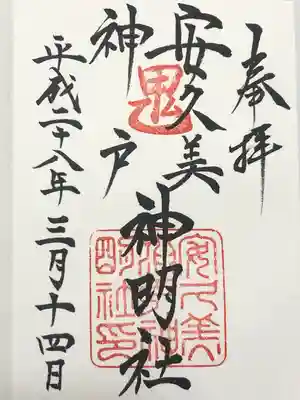 奉拝
安久美
神戸
神明社
鬼
安久美
神戸神
明社印
平成二十八年三月十四日